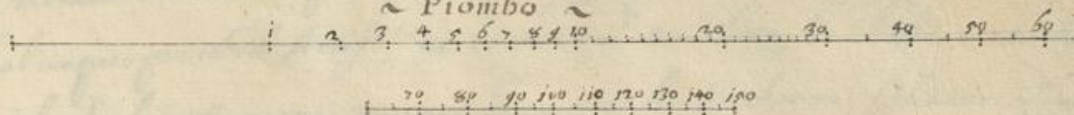 ~ Piombo ~
1 2 3 4 5 6 7 8 9 10 20 30 40 50 60
70 80 90 100 110 120 130 140 150